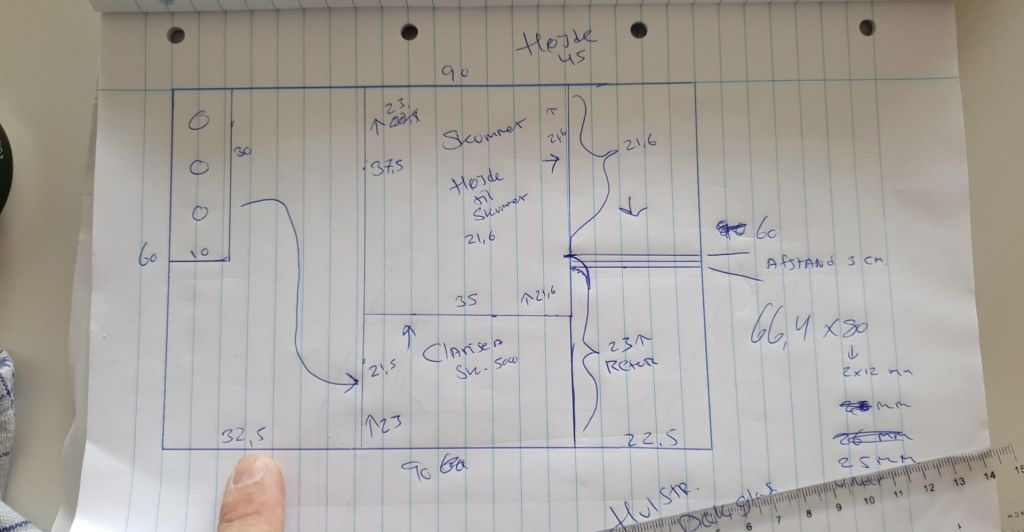 Højde
45
90
23,
↑
30
37,5
Skummer
↑
21,6
→
21,6
↓
Højde
til
Skummer
21,6
60
10
60
Afstand 3 cm
35
↑21,6
↑
Clarisea
SK-5000
21,5
23↑
Retur
66,4 x 80
↓
2x12 mm
mm
25 mm
↑23
32,5
22,5
90
Hulstr.
0 1 2 3 4 5 6 7 8 9 10 11 12 13 14 15